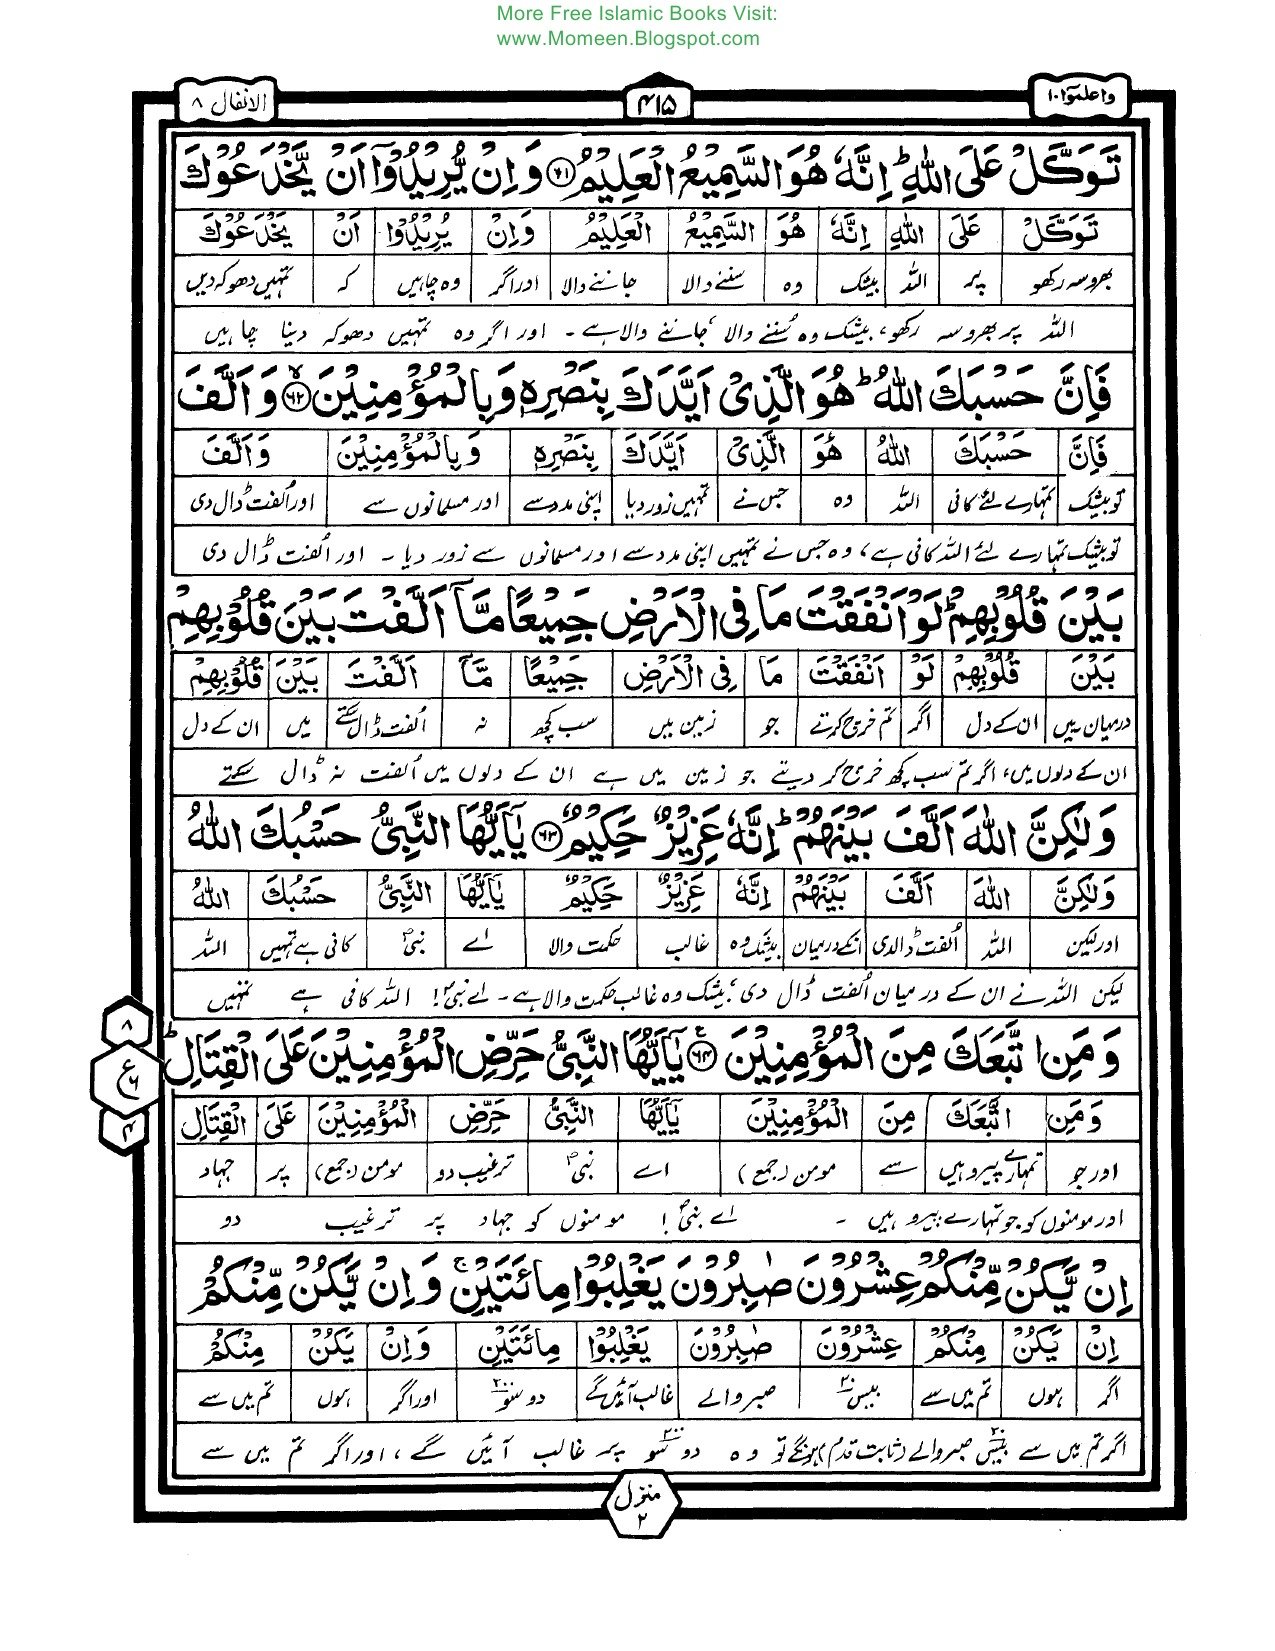 More Free Islamic Books Visit:
www.Momeen.Blogspot.com
واعلموا ۱۰
۴۱۵
الانفال ۸
تَوَكَّلْ عَلَى اللّٰهِ ؕ اِنَّهٗ هُوَ السَّمِيْعُ الْعَلِيْمُ ۶۱ وَ اِنْ يُّرِيْدُوْۤا اَنْ يَّخْدَعُوْكَ
تَوَكَّلْ عَلَى اللّٰهِ اِنَّهٗ هُوَ السَّمِيْعُ الْعَلِيْمُ وَاِنْ يُرِيْدُوْا اَنْ يَخْدَعُوْكَ
بھروسہ رکھو پر اللہ بیشک وہ سننے والا جاننے والا اور اگر وہ چاہیں کہ تمہیں دھوکہ دیں
اللہ پر بھروسہ رکھو، بیشک وہ سُننے والا، جاننے والا ہے۔ اور اگر وہ تمہیں دھوکہ دینا چاہیں
فَاِنَّ حَسْبَكَ اللّٰهُ ؕ هُوَ الَّذِىْۤ اَيَّدَكَ بِنَصْرِهٖ وَبِالْمُؤْمِنِيْنَ ۶۲ ۙ وَ اَلَّفَ
فَاِنَّ حَسْبَكَ اللّٰهُ هُوَ الَّذِىْ اَيَّدَكَ بِنَصْرِهٖ وَبِالْمُؤْمِنِيْنَ وَاَلَّفَ
تو بیشک تمہارے لئے کافی اللہ وہ جس نے تمہیں زور دیا اپنی مدد سے اور مسلمانوں سے اور اُلفت ڈال دی
تو بیشک تمہارے لئے اللہ کافی ہے، وہ جس نے تمہیں اپنی مدد سے اور مسلمانوں سے زور دیا۔ اور اُلفت ڈال دی
بَيْنَ قُلُوْبِهِمْ ؕ لَوْ اَنْفَقْتَ مَا فِى الْاَرْضِ جَمِيْعًا مَّاۤ اَلَّفْتَ بَيْنَ قُلُوْبِهِمْ
بَيْنَ قُلُوْبِهِمْ لَوْ اَنْفَقْتَ مَا فِى الْاَرْضِ جَمِيْعًا مَّاۤ اَلَّفْتَ بَيْنَ قُلُوْبِهِمْ
درمیان میں ان کے دل اگر تم خرچ کرتے جو زمین میں سب کچھ نہ اُلفت ڈال سکتے میں ان کے دل
ان کے دلوں میں، اگر تم سب کچھ خرچ کر دیتے جو زمین میں ہے ان کے دلوں میں اُلفت نہ ڈال سکتے
وَلٰكِنَّ اللّٰهَ اَلَّفَ بَيْنَهُمْ ؕ اِنَّهٗ عَزِيْزٌ حَكِيْمٌ ۶۳ يٰۤاَيُّهَا النَّبِىُّ حَسْبُكَ اللّٰهُ
وَلٰكِنَّ اللّٰهَ اَلَّفَ بَيْنَهُمْ اِنَّهٗ عَزِيْزٌ حَكِيْمٌ يٰۤاَيُّهَا النَّبِىُّ حَسْبُكَ اللّٰهُ
اور لیکن اللہ اُلفت ڈالدی انکے درمیان بیشک وہ غالب حکمت والا اے نبیؐ کافی ہے تمہیں اللہ
لیکن اللہ نے ان کے درمیان اُلفت ڈال دی، بیشک وہ غالب حکمت والا ہے۔ اے نبیؐ! اللہ کافی ہے تمہیں
وَ مَنِ اتَّبَعَكَ مِنَ الْمُؤْمِنِيْنَ ۶۴ ع يٰۤاَيُّهَا النَّبِىُّ حَرِّضِ الْمُؤْمِنِيْنَ عَلَى الْقِتَالِ ؕ
۸
ع ۶
۴
وَمَنِ اتَّبَعَكَ مِنَ الْمُؤْمِنِيْنَ يٰۤاَيُّهَا النَّبِىُّ حَرِّضِ الْمُؤْمِنِيْنَ عَلَى الْقِتَالِ
اور جو تمہارے پیرو ہیں سے مومن (جمع) اے نبیؐ ترغیب دو مومن (جمع) پر جہاد
اور مومنوں کو جو تمہارے پیرو ہیں ۔ اے نبیؐ! مومنوں کو جہاد پر ترغیب دو
اِنْ يَّكُنْ مِّنْكُمْ عِشْرُوْنَ صٰبِرُوْنَ يَغْلِبُوْا مِائَتَيْنِ ۚ وَ اِنْ يَّكُنْ مِّنْكُمْ
اِنْ يَّكُنْ مِنْكُمْ عِشْرُوْنَ صٰبِرُوْنَ يَغْلِبُوْا مِائَتَيْنِ وَاِنْ يَكُنْ مِنْكُمْ
اگر ہوں تم میں سے بیس ۲۰ صبر والے غالب آئیں گے دو سو ۲۰۰ اور اگر ہوں تم میں سے
اگر تم میں سے بیس ۲۰ صبر والے (ثابت قدم) ہونگے تو وہ دو سو ۲۰۰ پر غالب آئیں گے، اور اگر تم میں سے
منزل ۲